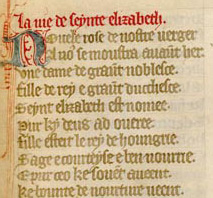 La uie de seynte elizabeth.
Nouele rose de nostre uerger
el no se moustra auant her
one dame de graūt noblesce.
fille de rey e graūt ducchesce.
Seynt elizabeth est nomee.
Pur ky deus ad oueree.
fille esteit le rey de houngrie.
Sage e courteyse e ben nourrie.
E pur ceo ke souent auient.
ke bounte de nourture uient.